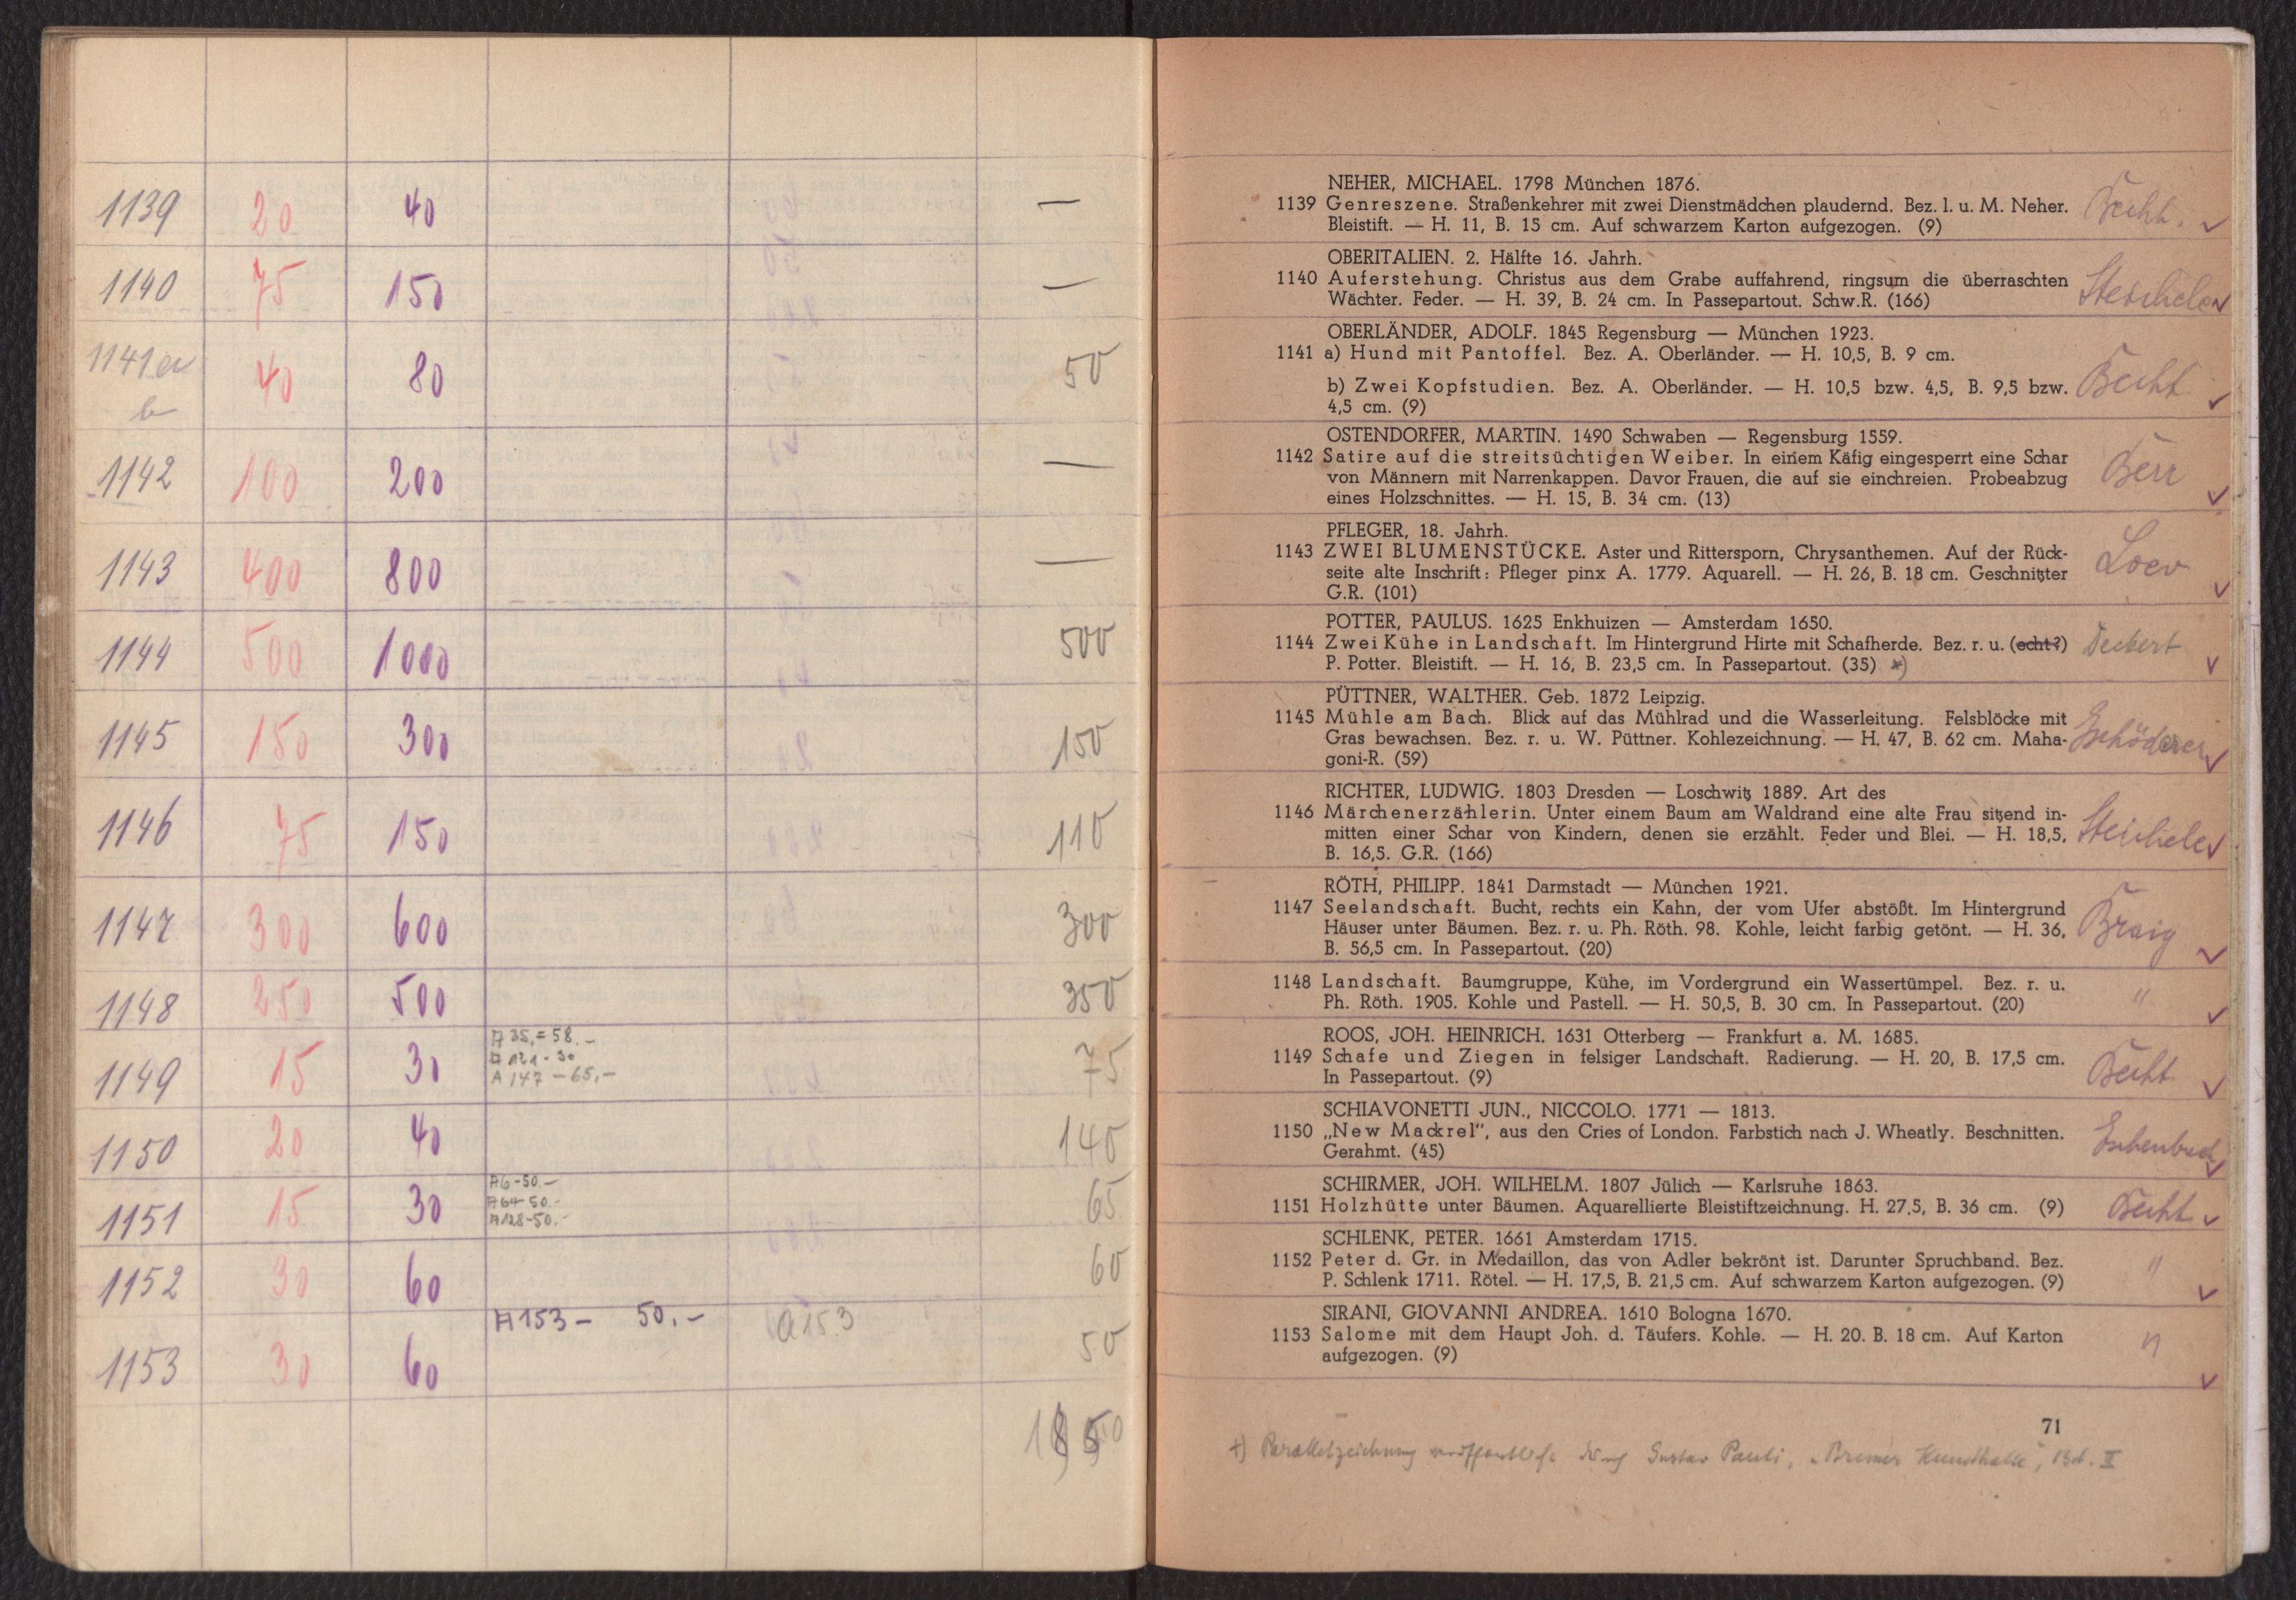 1139 20 40 —
1140 75 150 —
1141 a 40 80 50
b
1142 100 200 —
1143 400 800 —
1144 500 1000 500
1145 150 300 150
1146 75 150 110
1147 300 600 300
1148 250 500 350
A 35,= 58.–
A 121 - 30
1149 15 30 A 147 – 65,– 75
1150 20 40 140
A6-50.–
A64-50.–
1151 15 30 A128-50.– 65
1152 30 60 60
A153 – 50.– A153
1153 30 60 50
NEHER, MICHAEL. 1798 München 1876.
1139 Genreszene. Straßenkehrer mit zwei Dienstmädchen plaudernd. Bez. l. u. M. Neher. Becht.
Bleistift. — H. 11, B. 15 cm. Auf schwarzem Karton aufgezogen. (9)
OBERITALIEN. 2. Hälfte 16. Jahrh.
1140 Auferstehung. Christus aus dem Grabe auffahrend, ringsum die überraschten Steichele
Wächter. Feder. — H. 39, B. 24 cm. In Passepartout. Schw.R. (166)
OBERLÄNDER, ADOLF. 1845 Regensburg — München 1923.
1141 a) Hund mit Pantoffel. Bez. A. Oberländer. — H. 10,5, B. 9 cm.
b) Zwei Kopfstudien. Bez. A. Oberländer. — H. 10,5 bzw. 4,5, B. 9,5 bzw. Becht
4,5 cm. (9)
OSTENDORFER, MARTIN. 1490 Schwaben — Regensburg 1559.
1142 Satire auf die streitsüchtigen Weiber. In einem Käfig eingesperrt eine Schar Berr
von Männern mit Narrenkappen. Davor Frauen, die auf sie einchreien. Probeabzug
eines Holzschnittes. — H. 15, B. 34 cm. (13)
PFLEGER, 18. Jahrh.
1143 ZWEI BLUMENSTÜCKE. Aster und Rittersporn, Chrysanthemen. Auf der Rück- Loev
seite alte Inschrift: Pfleger pinx A. 1779. Aquarell. — H. 26, B. 18 cm. Geschnitzter
G.R. (101)
POTTER, PAULUS. 1625 Enkhuizen — Amsterdam 1650.
1144 Zwei Kühe in Landschaft. Im Hintergrund Hirte mit Schafherde. Bez. r. u. (echt?)
P. Potter. Bleistift. — H. 16, B. 23,5 cm. In Passepartout. (35) *)
PÜTTNER, WALTHER. Geb. 1872 Leipzig.
1145 Mühle am Bach. Blick auf das Mühlrad und die Wasserleitung. Felsblöcke mit
Gras bewachsen. Bez. r. u. W. Püttner. Kohlezeichnung. — H. 47, B. 62 cm. Maha-
goni-R. (59)
RICHTER, LUDWIG. 1803 Dresden — Loschwitz 1889. Art des
1146 Märchenerzählerin. Unter einem Baum am Waldrand eine alte Frau sitzend in- Steichele
mitten einer Schar von Kindern, denen sie erzählt. Feder und Blei. — H. 18,5,
B. 16,5. G.R. (166)
RÖTH, PHILIPP. 1841 Darmstadt — München 1921.
1147 Seelandschaft. Bucht, rechts ein Kahn, der vom Ufer abstößt. Im Hintergrund Braig
Häuser unter Bäumen. Bez. r. u. Ph. Röth. 98. Kohle, leicht farbig getönt. — H. 36,
B. 56,5 cm. In Passepartout. (20)
1148 Landschaft. Baumgruppe, Kühe, im Vordergrund ein Wassertümpel. Bez. r. u. "
Ph. Röth. 1905. Kohle und Pastell. — H. 50,5, B. 30 cm. In Passepartout. (20)
ROOS, JOH. HEINRICH. 1631 Otterberg — Frankfurt a. M. 1685.
1149 Schafe und Ziegen in felsiger Landschaft. Radierung. — H. 20, B. 17,5 cm. Becht
In Passepartout. (9)
SCHIAVONETTI JUN., NICCOLO. 1771 — 1813.
1150 „New Mackrel", aus den Cries of London. Farbstich nach J. Wheatly. Beschnitten. Eschenbach
Gerahmt. (45)
SCHIRMER, JOH. WILHELM. 1807 Jülich — Karlsruhe 1863.
1151 Holzhütte unter Bäumen. Aquarellierte Bleistiftzeichnung. H. 27,5, B. 36 cm. (9) Becht
SCHLENK, PETER. 1661 Amsterdam 1715.
1152 Peter d. Gr. in Medaillon, das von Adler bekrönt ist. Darunter Spruchband. Bez. "
P. Schlenk 1711. Rötel. — H. 17,5, B. 21,5 cm. Auf schwarzem Karton aufgezogen. (9)
SIRANI, GIOVANNI ANDREA. 1610 Bologna 1670.
1153 Salome mit dem Haupt Joh. d. Täufers. Kohle. — H. 20. B. 18 cm. Auf Karton "
aufgezogen. (9)
71
+) Parallelzeichnung veröffentlicht durch Gustav Pauli, „Bremer Kunsthalle", Bd. II